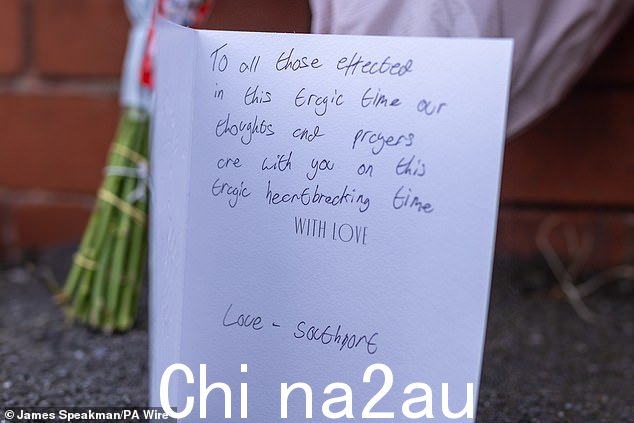 To all those effected
in this tragic time our
thoughts and prayers
are with you on this
tragic heartbreaking time
WITH LOVE
Love - Southport
Chi na2au
© James Speakman/PA Wire